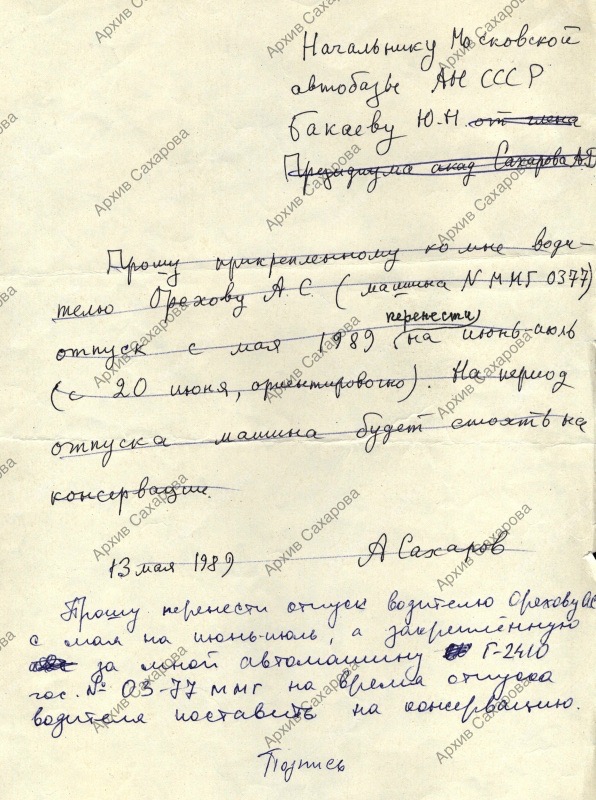 Начальнику Московской
автобазы АН СССР
Бакаеву Ю.Н. от члена
Президиума акад Сахарова А.Д
Прошу прикрепленному ко мне води-
телю Орехову А.С. (машина N ММГ 0377)
перенести
отпуск с мая 1989 на июнь-июль
(с 20 июня, ориентировочно). На период
отпуска машина будет стоять на
консервации.
13 мая 1989 А Сахаров
Прошу перенести отпуск водителю Орехову АС
с мая на июнь-июль, а закреплённую
за мной автомашину Г-2410
гос. № 03-77 ммг на время отпуска
водителя поставить на консервацию.
Подпись
Архив Сахарова